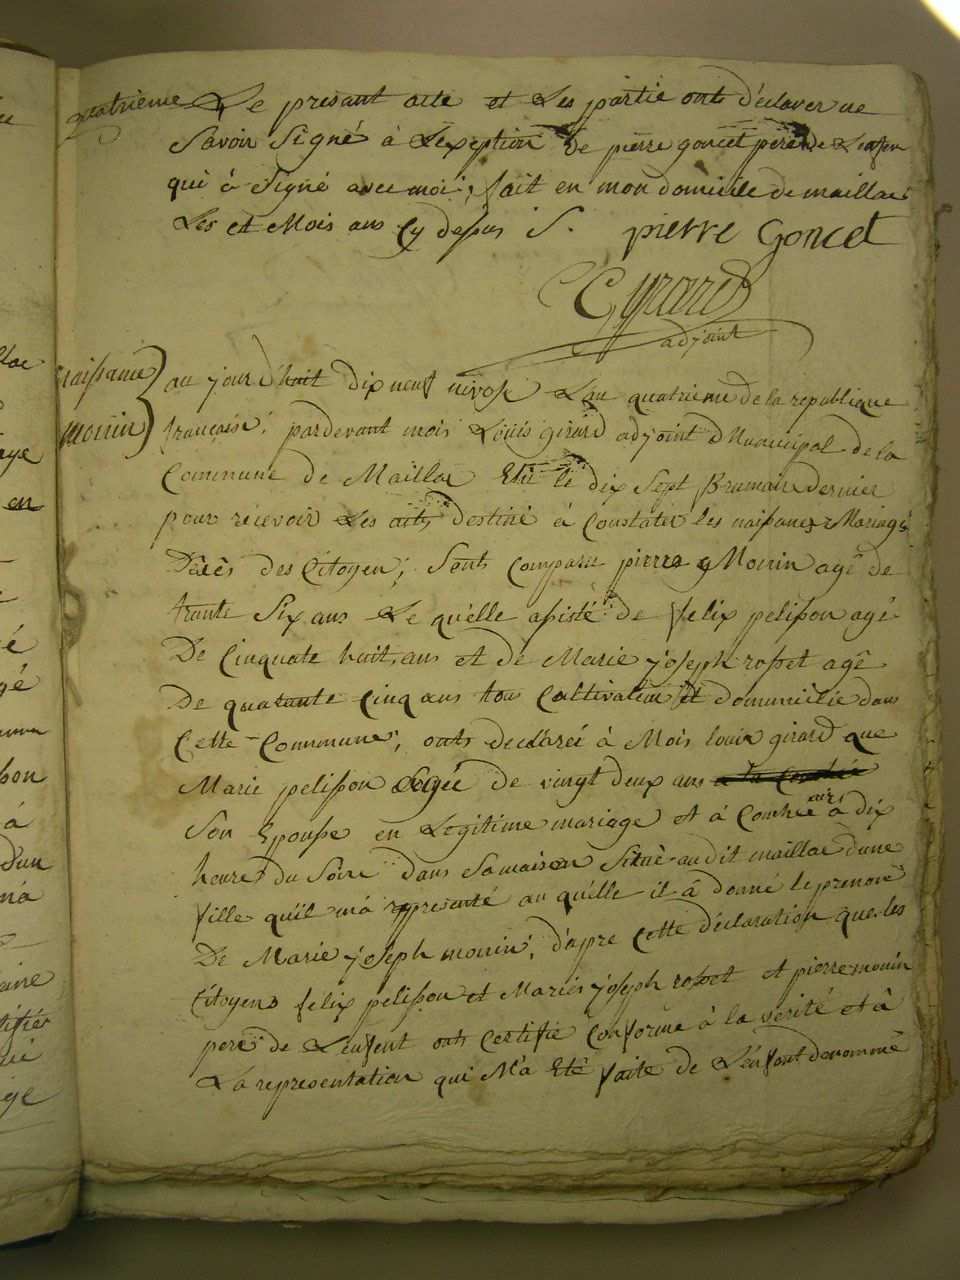 quatrieme Le presant acte et Les partie onts déclarer ne
Savoir Signé à Lexception de pierre goncet pere de Lenfen
qui à Signé avec moi, fait en mon domicille de maillac
Les et Mois ans Cy dessus S. pierre Goncet
Girard
adjoint
naissance
monin
au jour dhuit dix neuf nivose Lan quatrieme de la republique
française, pardevant mois Louis girard adjoint Municipal de la
Commune de Maillac Elu le dix Sept Brumaire dernier
pour récevoir Les acts destiné à Constater les naissance Mariage
Décès des Citoyen, Sonts Comparu pierre Monin agé de
trante Six ans Le quélle assisté de felix pelisson agé
De Cinquate huit ans et de Marie joseph rosset agé
De quarante Cinq ans tou Cultivateur et domicilié dans
Cette Commune, onts déclaréé à Mois louis girard que
Marie pelisson agée de vingt deux ans
Son Epousse en Legitime mariage et à Couhée à dix
heures du Soire dans Sa maison Situé audit maillac dune
fille quil má représenté au quélle il â donné le prenom
De Marie joseph monin, d'apre Cette déclaration que les
Citoyens felix pelisson et Maries joseph rosset et pierre monin
pere de L'enfent onts Certifié Conforme à la vérité et â
La representation qui M'à Eté faite de L'énfant denommé